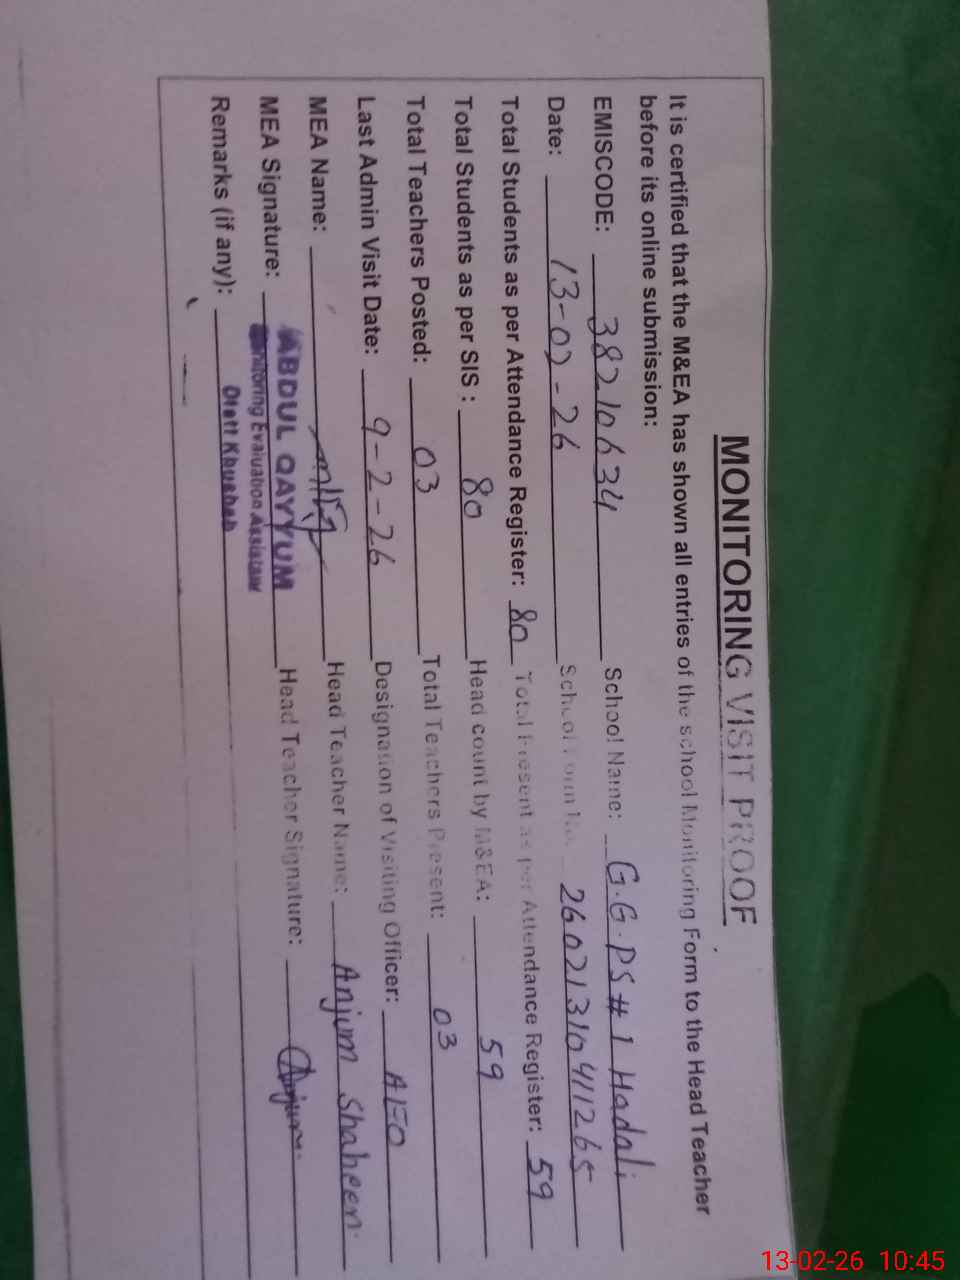 MONITORING VISIT PROOF
It is certified that the M&EA has shown all entries of the school Monitoring Form to the Head Teacher
before its online submission:
EMISCODE: 38210634 School Name: G.G.PS # 1 Hadali
Date: 13-02-26 School Form No. 26021310411265
Total Students as per Attendance Register: 80 Total Present as per Attendance Register: 59
Total Students as per SIS : 80 Head count by M&EA: 59
Total Teachers Posted: 03 Total Teachers Present: 03
Last Admin Visit Date: 9-2-26 Designation of Visiting Officer: AEO
MEA Name: Head Teacher Name: Anjum Shaheen
MEA Signature: ABDUL QAYYUM Head Teacher Signature: Anjum
Monitoring Evaluation Assistant
Remarks (if any): Distt Khushab
13-02-26 10:45